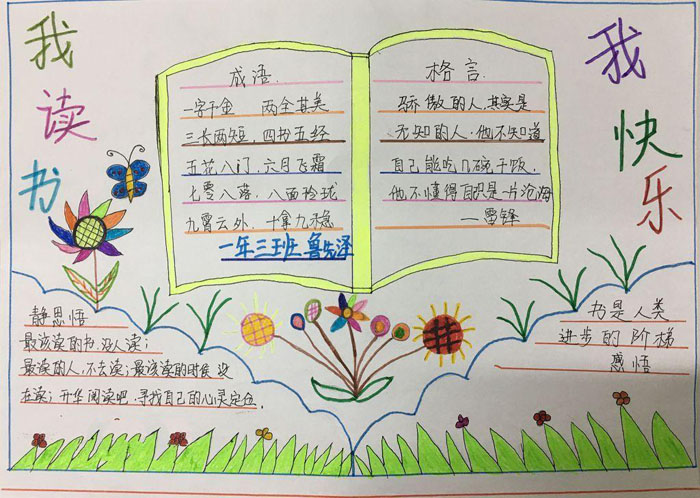 我读书
我快乐
成语
一字千金 两全其美
三长两短，四书五经
五花八门，六月飞霜
七零八落，八面玲珑
九霄云外，十拿九稳
一年三班 鲁先泽
格言
骄傲的人，其实是
无知的人，他不知道
自己能吃几碗干饭，
他不懂得自己只是一片沧海
—雷锋
静思悟
最该读的书，没人读；
最该读的人，不去读；最该读的时候 没
在读；升华阅读吧，寻找自己的心灵定位。
书是人类
进步的阶梯
感悟